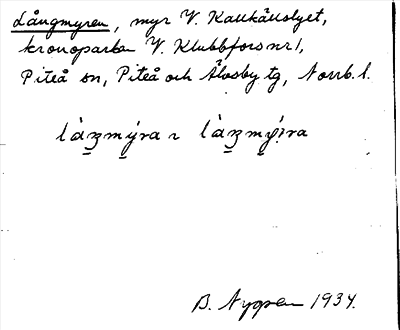 Långmyren, myr V. Kallkällolyet,
kronoparken V. Klubbfors nr 1,
Piteå sn, Piteå och Älvsby tg, Norrb. l.
B. Nygren 1934.